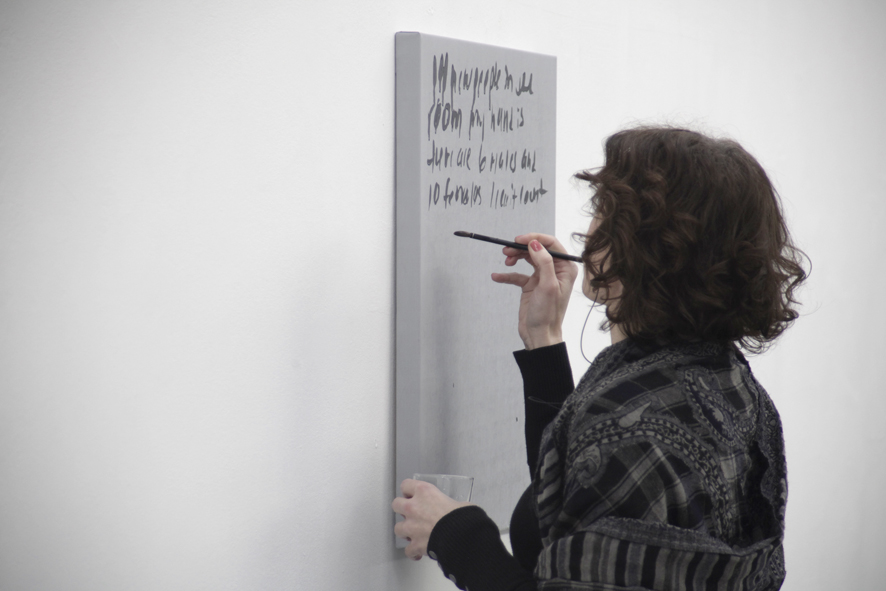 new people in the
room my hand is
there are 6 males and
10 females I can't count